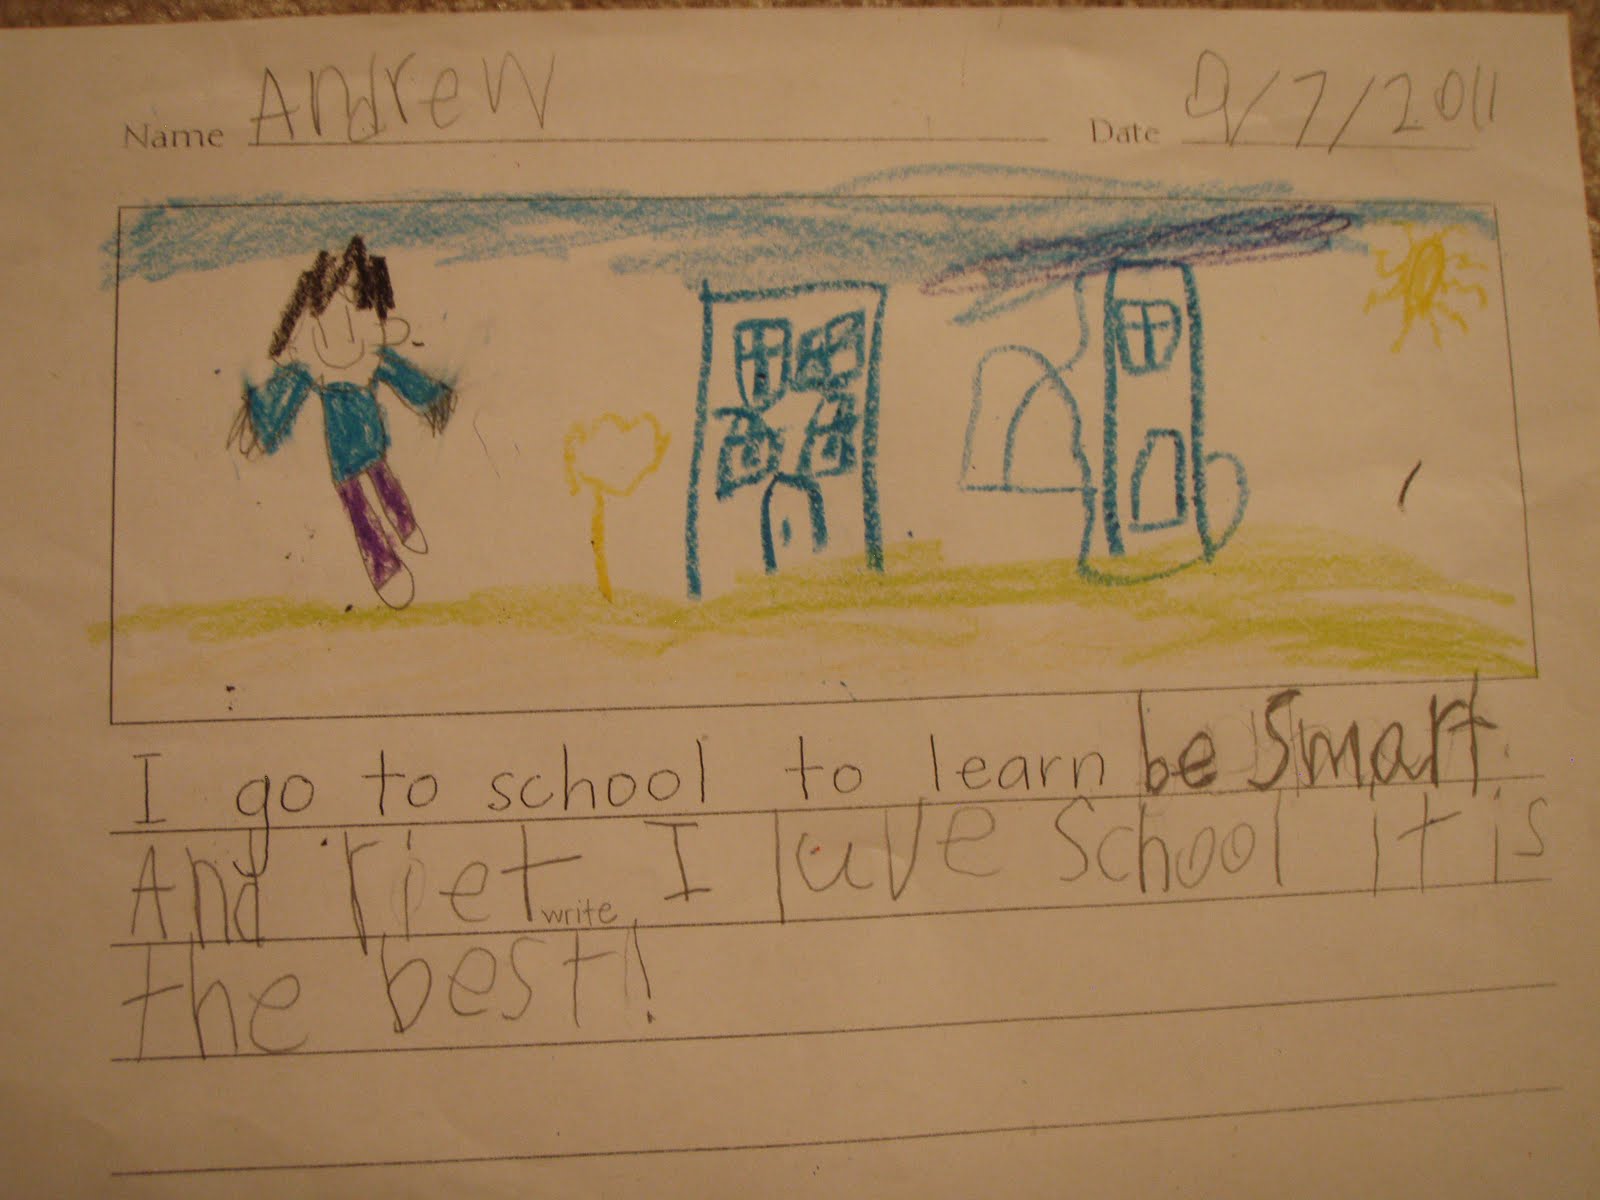 Name Andrew Date 9/7/2011
I go to school to learn be smart.
And riet write I luve school it is
the best!